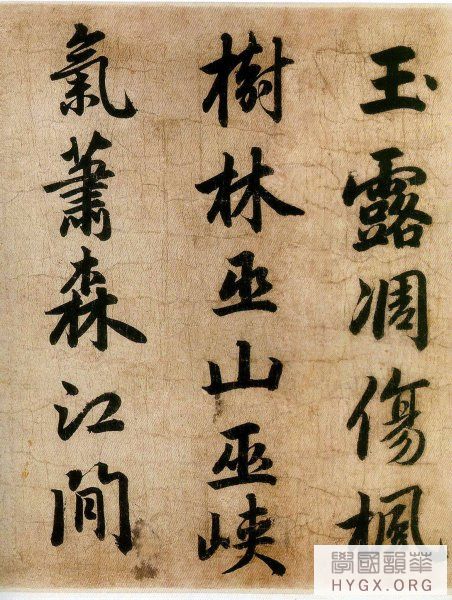 玉露凋傷楓
樹林巫山巫峽
氣蕭森江間
華韻國學
HYGX.ORG